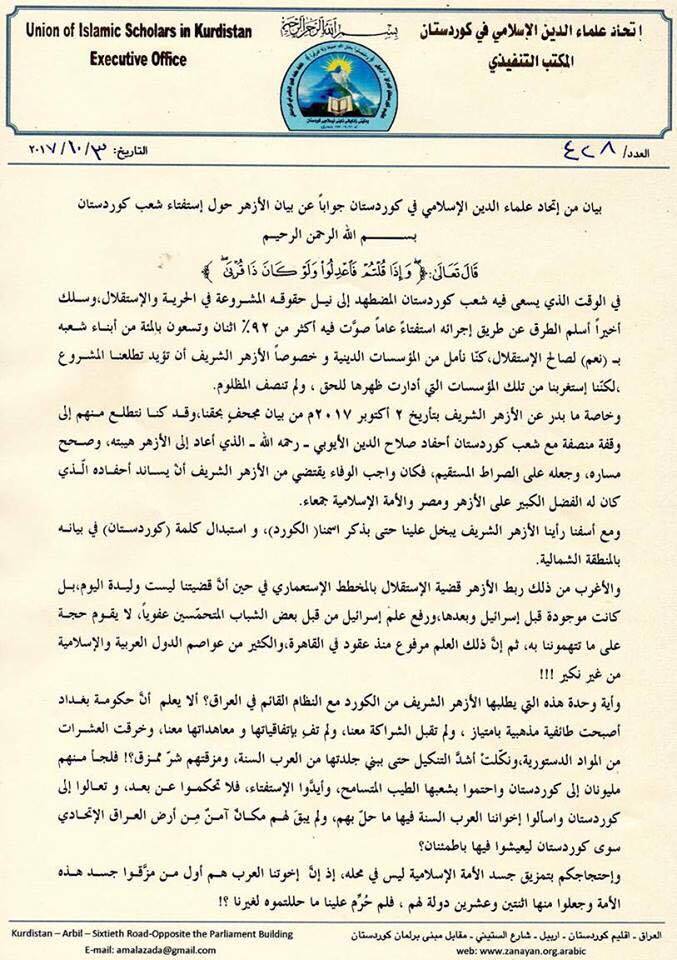 Union of Islamic Scholars in Kurdistan
Executive Office
بسم الله الرحمن الرحيم
إتحاد علماء الدين الإسلامي في كوردستان
المكتب التنفيذي
العدد/ ٤٢٨
التاريخ: ٢٠١٧/١٠/٣
بيان من إتحاد علماء الدين الإسلامي في كوردستان جواباً عن بيان الأزهر حول إستفتاء شعب كوردستان
بســـم الله الرحمن الرحيم
قَالَ تَعَالَى: ﴿ وَإِذَا قُلْتُمْ فَاعْدِلُوا وَلَوْ كَانَ ذَا قُرْبَىٰ ﴾
في الوقت الذي يسعى فيه شعب كوردستان المضطهد إلى نيـل حقوقـه المشـروعة في الحريـة والإستقلال،وسـلك
أخيراً أسلم الطرق عن طريق إجرائه استفتاءً عاماً صوَّت فيه أكثر من ٩٢٪ اثنان وتسعون بالمئة من أبنـاء شـعبه
بـ (نعم) لصالح الإستقلال،كنّا نأمل من المؤسسات الدينية و خصوصاً الأزهر الشريف أن تؤيد تطلعنـا المشـروع
،لكنّنا إستغربنا من تلك المؤسسات التي أدارت ظهرها للحق ، ولم تنصف المظلوم.
وخاصة ما بدر عن الأزهر الشريف بتأريخ ٢ أكتوبر ٢٠١٧م من بيان مجحفٍ بحقنـا،وقـد كنـا نتطلـع منـهم إلى
وقفة منصفة مع شعب كوردستان أحفاد صلاح الدين الأيوبي ـ رحمه الله ـ الذي أعاد إلى الأزهر هيبته، وصـحح
مساره، وجعله على الصراط المستقيم، فكان واجب الوفاء يقتضي من الأزهر الشريف أنْ يسـاند أحفـاده الّـذي
كان له الفضل الكبير على الأزهر ومصر والأمة الإسلامية جمعاء.
ومع أسفنا رأينا الأزهر الشريف يبخل علينا حتى بذكر اسمنا( الكورد)، و استبدال كلمة (كوردسـتان) في بيانـه
بالمنطقة الشمالية.
والأغرب من ذلك ربط الأزهر قضية الإستقلال بالمخطط الإستعماري في حين أنَّ قضيتنا ليست وليدة اليوم،بـل
كانت موجودة قبل إسرائيل وبعدها،ورفع علمَ إسرائيل من قبل بعض الشباب المتحمّسين عفوياً، لا يقـوم حجـة
على ما تتهموننا به، ثم إنَّ ذلك العلم مرفوع منذ عقود في القاهرة،والكثير من عواصم الدول العربية والإسلامية
من غير نكير !!!
وأية وحدة هذه التي يطلبها الأزهر الشريف من الكورد مع النظام القائم في العراق؟ ألا يعلم أنَّ حكومـة بغـداد
أصبحت طائفية مذهبية بامتياز ، ولم تقبل الشراكة معنا، ولم تفِ بإتفاقياتها و معاهداتها معنا، وخرقت العشـرات
من المواد الدستورية،ونكّلتْ أشدَّ التنكيل حتى ببني جلدتها من العرب السنة، ومزقتهم شرّ ممزق؟! فلجـأ منـهم
مليونان إلى كوردستان واحتموا بشعبها الطيب المتسامح، وأيدُّوا الإستفتاء، فلا تحكمـوا عـن بعـد، و تعـالوا إلى
كوردستان واسألوا إخواننا العرب السنة فيها ما حلّ بهم، ولم يبقَ لهـم مكـانٌ آمـنٌ مِـن أرض العراق الإتحـادي
سوى كوردستان ليعيشوا فيها باطمئنان؟
وإحتجاجكم بتمزيق جسد الأمة الإسلامية ليس في محله، إذ إنَّ إخوتنا العرب هـم أول مـن مزَّقـوا جسـد هـذه
الأمة وجعلوا منها اثنتين وعشرين دولة لهم ، فلم حُرِّم علينا ما حللتموه لغيرنا ؟!
Kurdistan – Arbil – Sixtieth Road-Opposite the Parliament Building
E-mail: amalazada@gmail.com
العراق - اقليم كوردستان - اربيل - شارع الستيني - مقابل مبنى برلمان كوردستان
web: www.zanayan.org.arabic